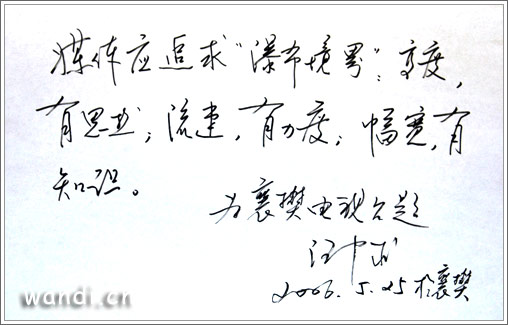 媒体应追求“瀑布境界”：高度，
有思想；流速，有力度；幅宽，有
知识。
为襄樊电视台题
汪中求
2006.5.25 于襄樊
wandi.cn